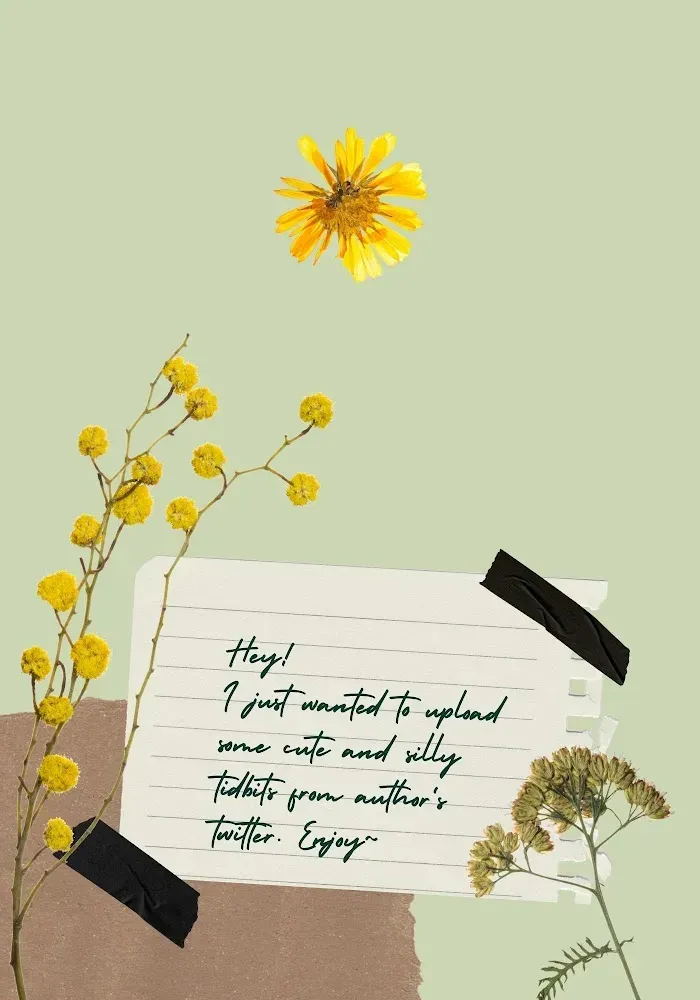 Hey!
I just wanted to upload
some cute and silly
tidbits from author's
twitter. Enjoy~